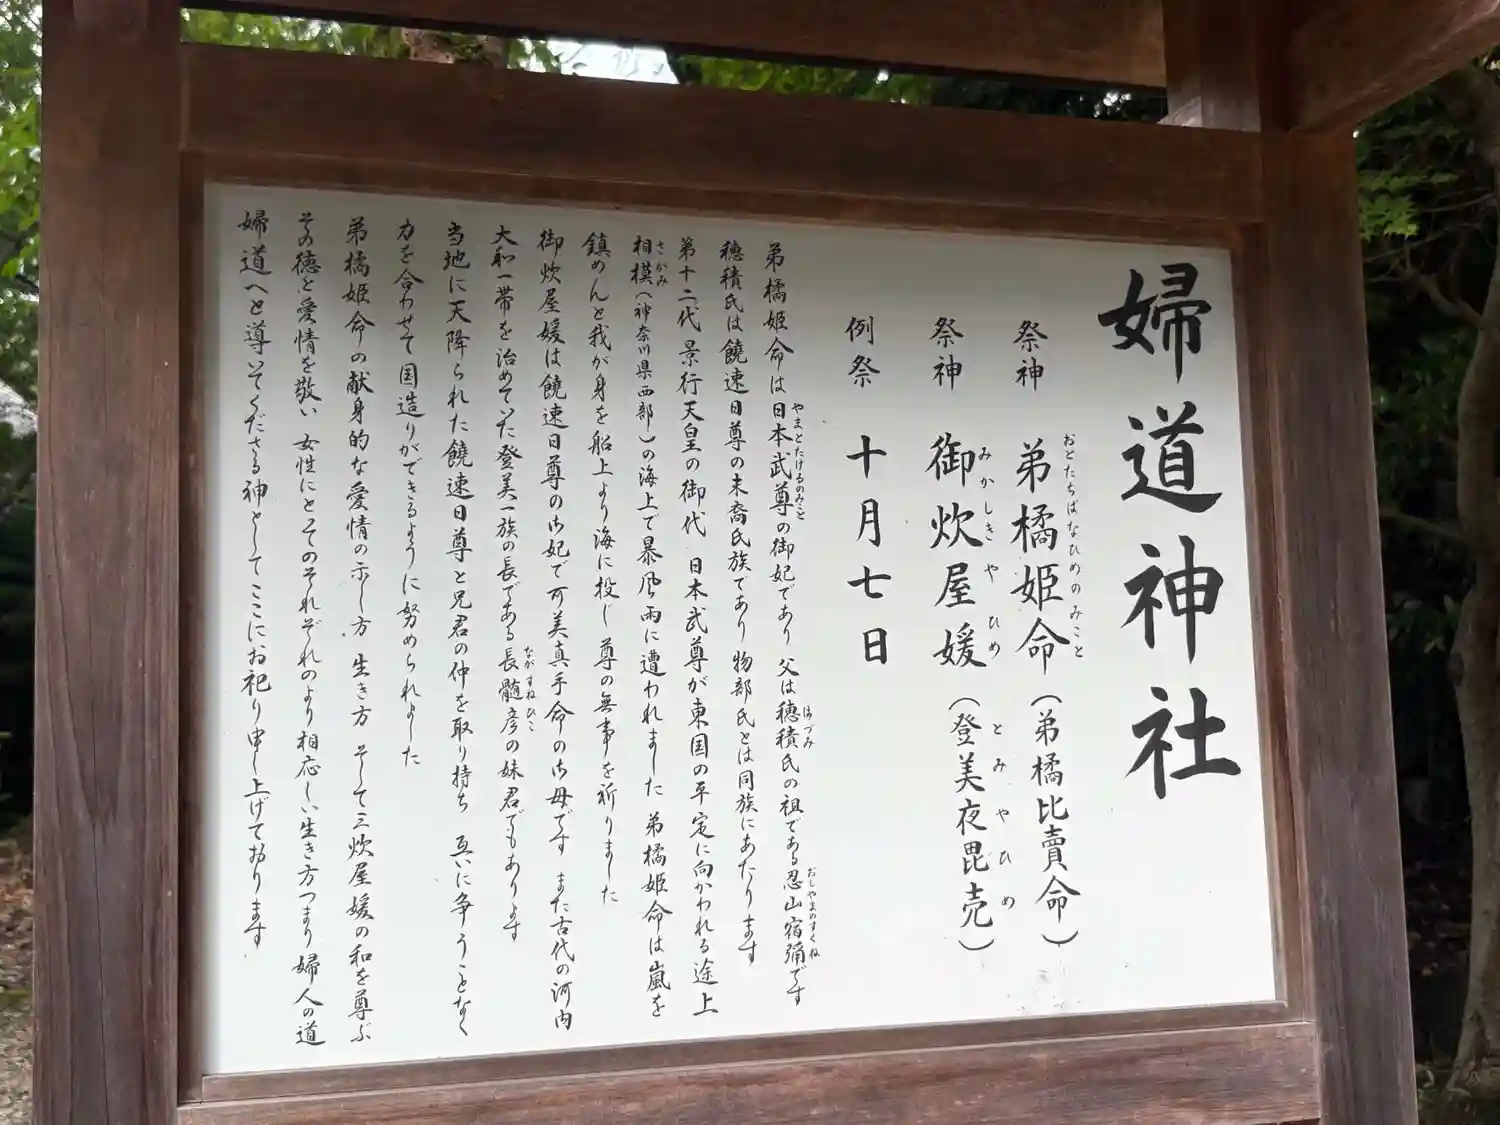 婦道神社
祭神 弟橘姫命(弟橘比賣命)
おとたちばなひめのみこと
祭神 御炊屋媛(登美夜毘売)
みかしきやひめ とみやひめ
例祭 十月七日
弟橘姫命は日本武尊の御妃であり 父は穂積氏の祖である忍山宿禰です
やまとたけるのみこと ほづみ おしやまのすくね
穂積氏は饒速日尊の末裔氏族であり 物部氏とは同族にあたります
第十二代景行天皇の御代 日本武尊が東国の平定に向かわれる途上
相模(神奈川県西部)の海上で暴風雨に遭われました 弟橘姫命は嵐を
さがみ
鎮めんと我が身を船上より海に投じ 尊の無事を祈りました
御炊屋媛は饒速日尊の御妃で可美真手命の御母です また古代の河内
大和一帯を治めていた登美一族の長である長髄彦の妹君でもあります
ながすねひこ
当地に天降られた饒速日尊と兄君の仲を取り持ち 互いに争うことなく
力を合わせて国造りができるように努められました
弟橘姫命の献身的な愛情の示し方 生き方 そして三炊屋媛の和を尊ぶ
その徳と愛情を敬い 女性にとそのそれぞれのより相応しい生き方つまり婦人の道
婦道へと導いてくださる神としてここにお祀り申し上げております